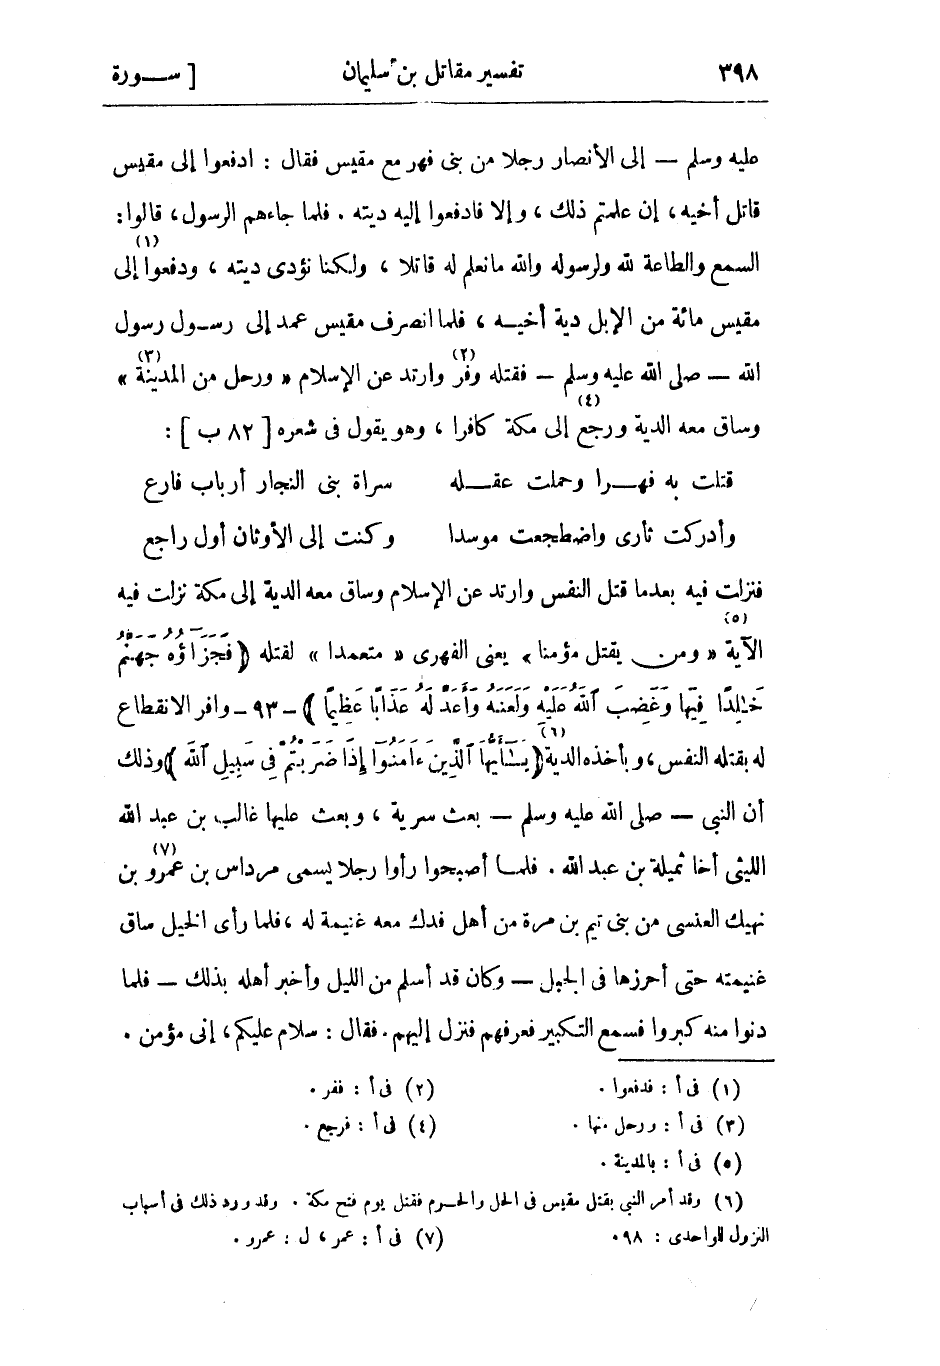 ٣٩٨ تفسير مقاتل بن سليمان [ سـورة
عليه وسلم — إلى الأنصار رجلا من بنى فهر مع مقيس فقال : ادفعوا إلى مقيس
قاتل أخيه، إن علمتم ذلك ، وإلا فادفعوا إليه ديته . فلما جاءهم الرسول ، قالوا :
السمع والطاعة لله ولرسوله والله مانعلم له قاتلا ، ولكنا نؤدى ديته ، ودفعوا (١) إلى
مقيس مائة من الإبل دية أخيـه ، فلما انصرف مقيس عمد إلى رسـول رسول
الله — صلى الله عليه وسلم — فقتله وفر (٢) وارتد عن الإسلام « ورحل من المدينة (٣) »
وساق معه الدية ورجع (٤) إلى مكة كافرا ، وهو يقول فى شعره [ ٨٢ ب ] :
قتلت به فهـرا وحملت عقـله سراة بنى النجار أرباب فارع
وأدركت ثأرى واضطجعت موسدا وكنت إلى الأوثان أول راجع
فنزلت فيه بعدما قتل النفس وارتد عن الإسلام وساق معه الدية إلى مكة نزلت فيه
الآية (٥) « ومن يقتل مؤمنا » يعنى الفهرى « متعمدا » لقتله ﴿ فَجَزَآؤُهُ جَهَنَّمُ
خَـٰلِدًا فِيهَا وَغَضِبَ ٱللَّهُ عَلَيْهِ وَلَعَنَهُ وَأَعَدَّ لَهُ عَذَابًا عَظِيمًا ﴾ - ٩٣ - وافر الانقطاع
له بقتله النفس، وبأخذه الدية (٦) ﴿ يَـٰٓأَيُّهَا ٱلَّذِينَ ءَامَنُوٓا إِذَا ضَرَبْتُمْ فِى سَبِيلِ ٱللَّهِ ﴾ وذلك
أن النبى — صلى الله عليه وسلم — بعث سرية ، وبعث عليها غالب بن عبد الله
الليثى أخا ثميلة بن عبد الله . فلمـا أصبحوا رأوا رجلا يسمى مرداس بن عمرو (٧) بن
نهيك العنسى من بنى تيم بن مرة من أهل فدك معه غنيمة له ، فلما رأى الخيل ساق
غنيمته حتى أحرزها فى الجبل — وكان قد أسلم من الليل وأخبر أهله بذلك — فلما
دنوا منه كبروا فسمع التكبير فعرفهم فنزل إليهم . فقال : سلام عليكم، إنى مؤمن .
(١) فى أ : فدفعوا . (٢) فى أ : ففر .
(٣) فى أ : ورحل منها . (٤) فى أ : فرجع .
(٥) فى أ : بالمدينة .
(٦) وقد أمر النبى بقتل مقيس فى الحل والحـرم فقتل يوم فتح مكة . وقد ورد ذلك فى أسباب
النزول للواحدى : ٩٨. (٧) فى أ : عمر ، ل : عمرو .